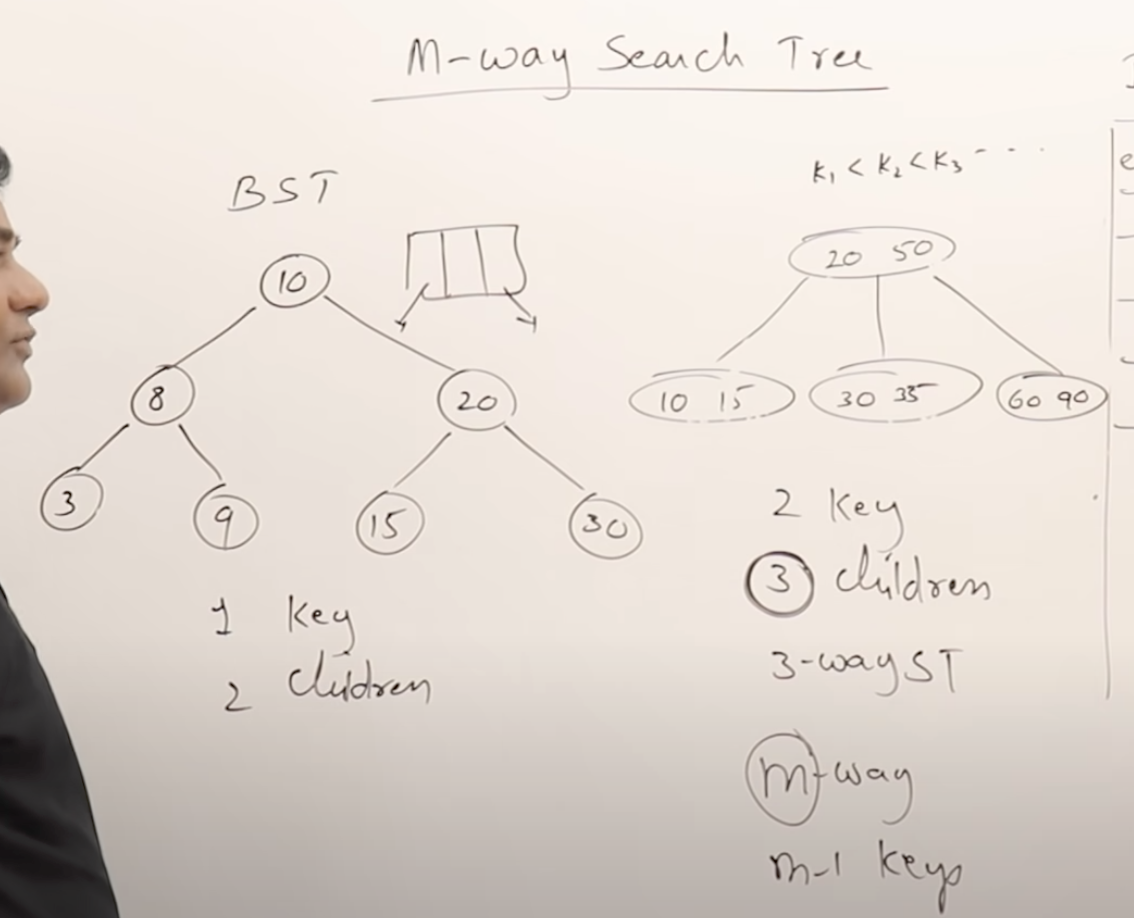 M-way Search Tree
BST
10
8 20
3 9 15 30
1 key
2 children
K₁ < K₂ < K₃ - - - .
20 50
10 15 30 35 60 90
2 key
3 children
3-way ST
m-way
m-1 keys